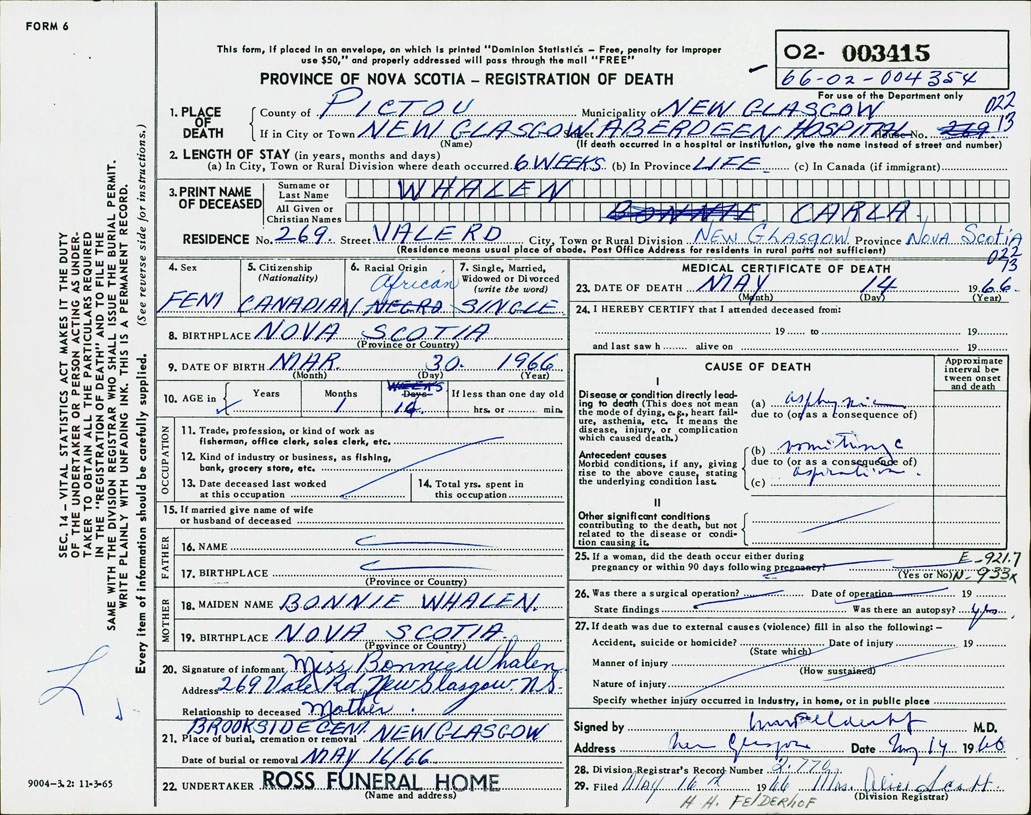 FORM 6
This form, if placed in an envelope, on which is printed "Dominion Statistics – Free, penalty for improper
use $50," and properly addressed will pass through the mail "FREE"
PROVINCE OF NOVA SCOTIA – REGISTRATION OF DEATH
02- 003415
66-02-004354
For use of the Department only
022
13
1. PLACE OF DEATH
County of PICTOU Municipality of NEW GLASGOW
If in City or Town NEW GLASGOW Street ABERDEEN HOSPITAL House No. 269
(Name) (If death occurred in a hospital or institution, give the name instead of street and number)
2. LENGTH OF STAY (in years, months and days)
(a) In City, Town or Rural Division where death occurred 6 WEEKS (b) In Province LIFE (c) In Canada (if immigrant)
3. PRINT NAME OF DECEASED
Surname or Last Name WHALEN
All Given or Christian Names BONNIE CARLA
RESIDENCE No. 269 Street VALE RD City, Town or Rural Division New Glasgow Province Nova Scotia
(Residence means usual place of abode. Post Office Address for residents in rural parts not sufficient)
022
13
4. Sex
FEM
5. Citizenship
(Nationality)
CANADIAN
6. Racial Origin
African
NEGRO
7. Single, Married, Widowed or Divorced
(write the word)
SINGLE
8. BIRTHPLACE NOVA SCOTIA
(Province or Country)
9. DATE OF BIRTH MAR. 30. 1966
(Month) (Day) (Year)
10. AGE in Years Months WEEKS Days If less than one day old
1 14 hrs. or min.
OCCUPATION
11. Trade, profession, or kind of work as
fisherman, office clerk, sales clerk, etc.
12. Kind of industry or business, as fishing,
bank, grocery store, etc.
13. Date deceased last worked
at this occupation
14. Total yrs. spent in
this occupation
15. If married give name of wife
or husband of deceased
FATHER
16. NAME
17. BIRTHPLACE
(Province or Country)
MOTHER
18. MAIDEN NAME BONNIE WHALEN.
19. BIRTHPLACE NOVA SCOTIA
(Province or Country)
20. Signature of informant Miss Bonnie Whalen
Address 269 Vale Rd. New Glasgow. N.S.
Relationship to deceased Mother.
BROOKSIDE CEM.
21. Place of burial, cremation or removal NEW GLASGOW
Date of burial or removal MAY 16/66
22. UNDERTAKER ROSS FUNERAL HOME
(Name and address)
MEDICAL CERTIFICATE OF DEATH
23. DATE OF DEATH MAY 14 1966.
(Month) (Day) (Year)
24. I HEREBY CERTIFY that I attended deceased from:
19 to 19
and last saw h alive on 19
CAUSE OF DEATH
Approximate interval between onset and death
I
Disease or condition directly leading to death (This does not mean
the mode of dying, e.g., heart failure, asthenia, etc. It means the
disease, injury, or complication
which caused death.)
(a) asphyxia
due to (or as a consequence of)
Antecedent causes
Morbid conditions, if any, giving
rise to the above cause, stating
the underlying condition last.
(b) vomiting c
due to (or as a consequence of)
(c) aspiration.
II
Other significant conditions
contributing to the death, but not
related to the disease or condition causing it.
25. If a woman, did the death occur either during
pregnancy or within 90 days following pregnancy?
(Yes or No)
E-921.7
N-933x
26. Was there a surgical operation? Date of operation 19
State findings Was there an autopsy? Yes
27. If death was due to external causes (violence) fill in also the following: –
Accident, suicide or homicide? Date of injury 19
(State which)
Manner of injury
(How sustained)
Nature of injury
Specify whether injury occurred in Industry, in home, or in public place
Signed by M.D.
Address New Glasgow Date May 14 1966
28. Division Registrar's Record Number 2.770
29. Filed May 16 1966 Mrs. Alice Scott
(Division Registrar)
H.H. FELDERHOF
SEC. 14 – VITAL STATISTICS ACT MAKES IT THE DUTY
OF THE UNDERTAKER OR PERSON ACTING AS UNDERTAKER TO OBTAIN ALL THE PARTICULARS REQUIRED
IN THE "REGISTRATION OF DEATH" AND TO FILE THE
SAME WITH THE DIVISION REGISTRAR WHO SHALL ISSUE THE BURIAL PERMIT.
WRITE PLAINLY WITH UNFADING INK. THIS IS A PERMANENT RECORD.
Every item of information should be carefully supplied. (See reverse side for instructions.)
9004–3.2: 11-3-65